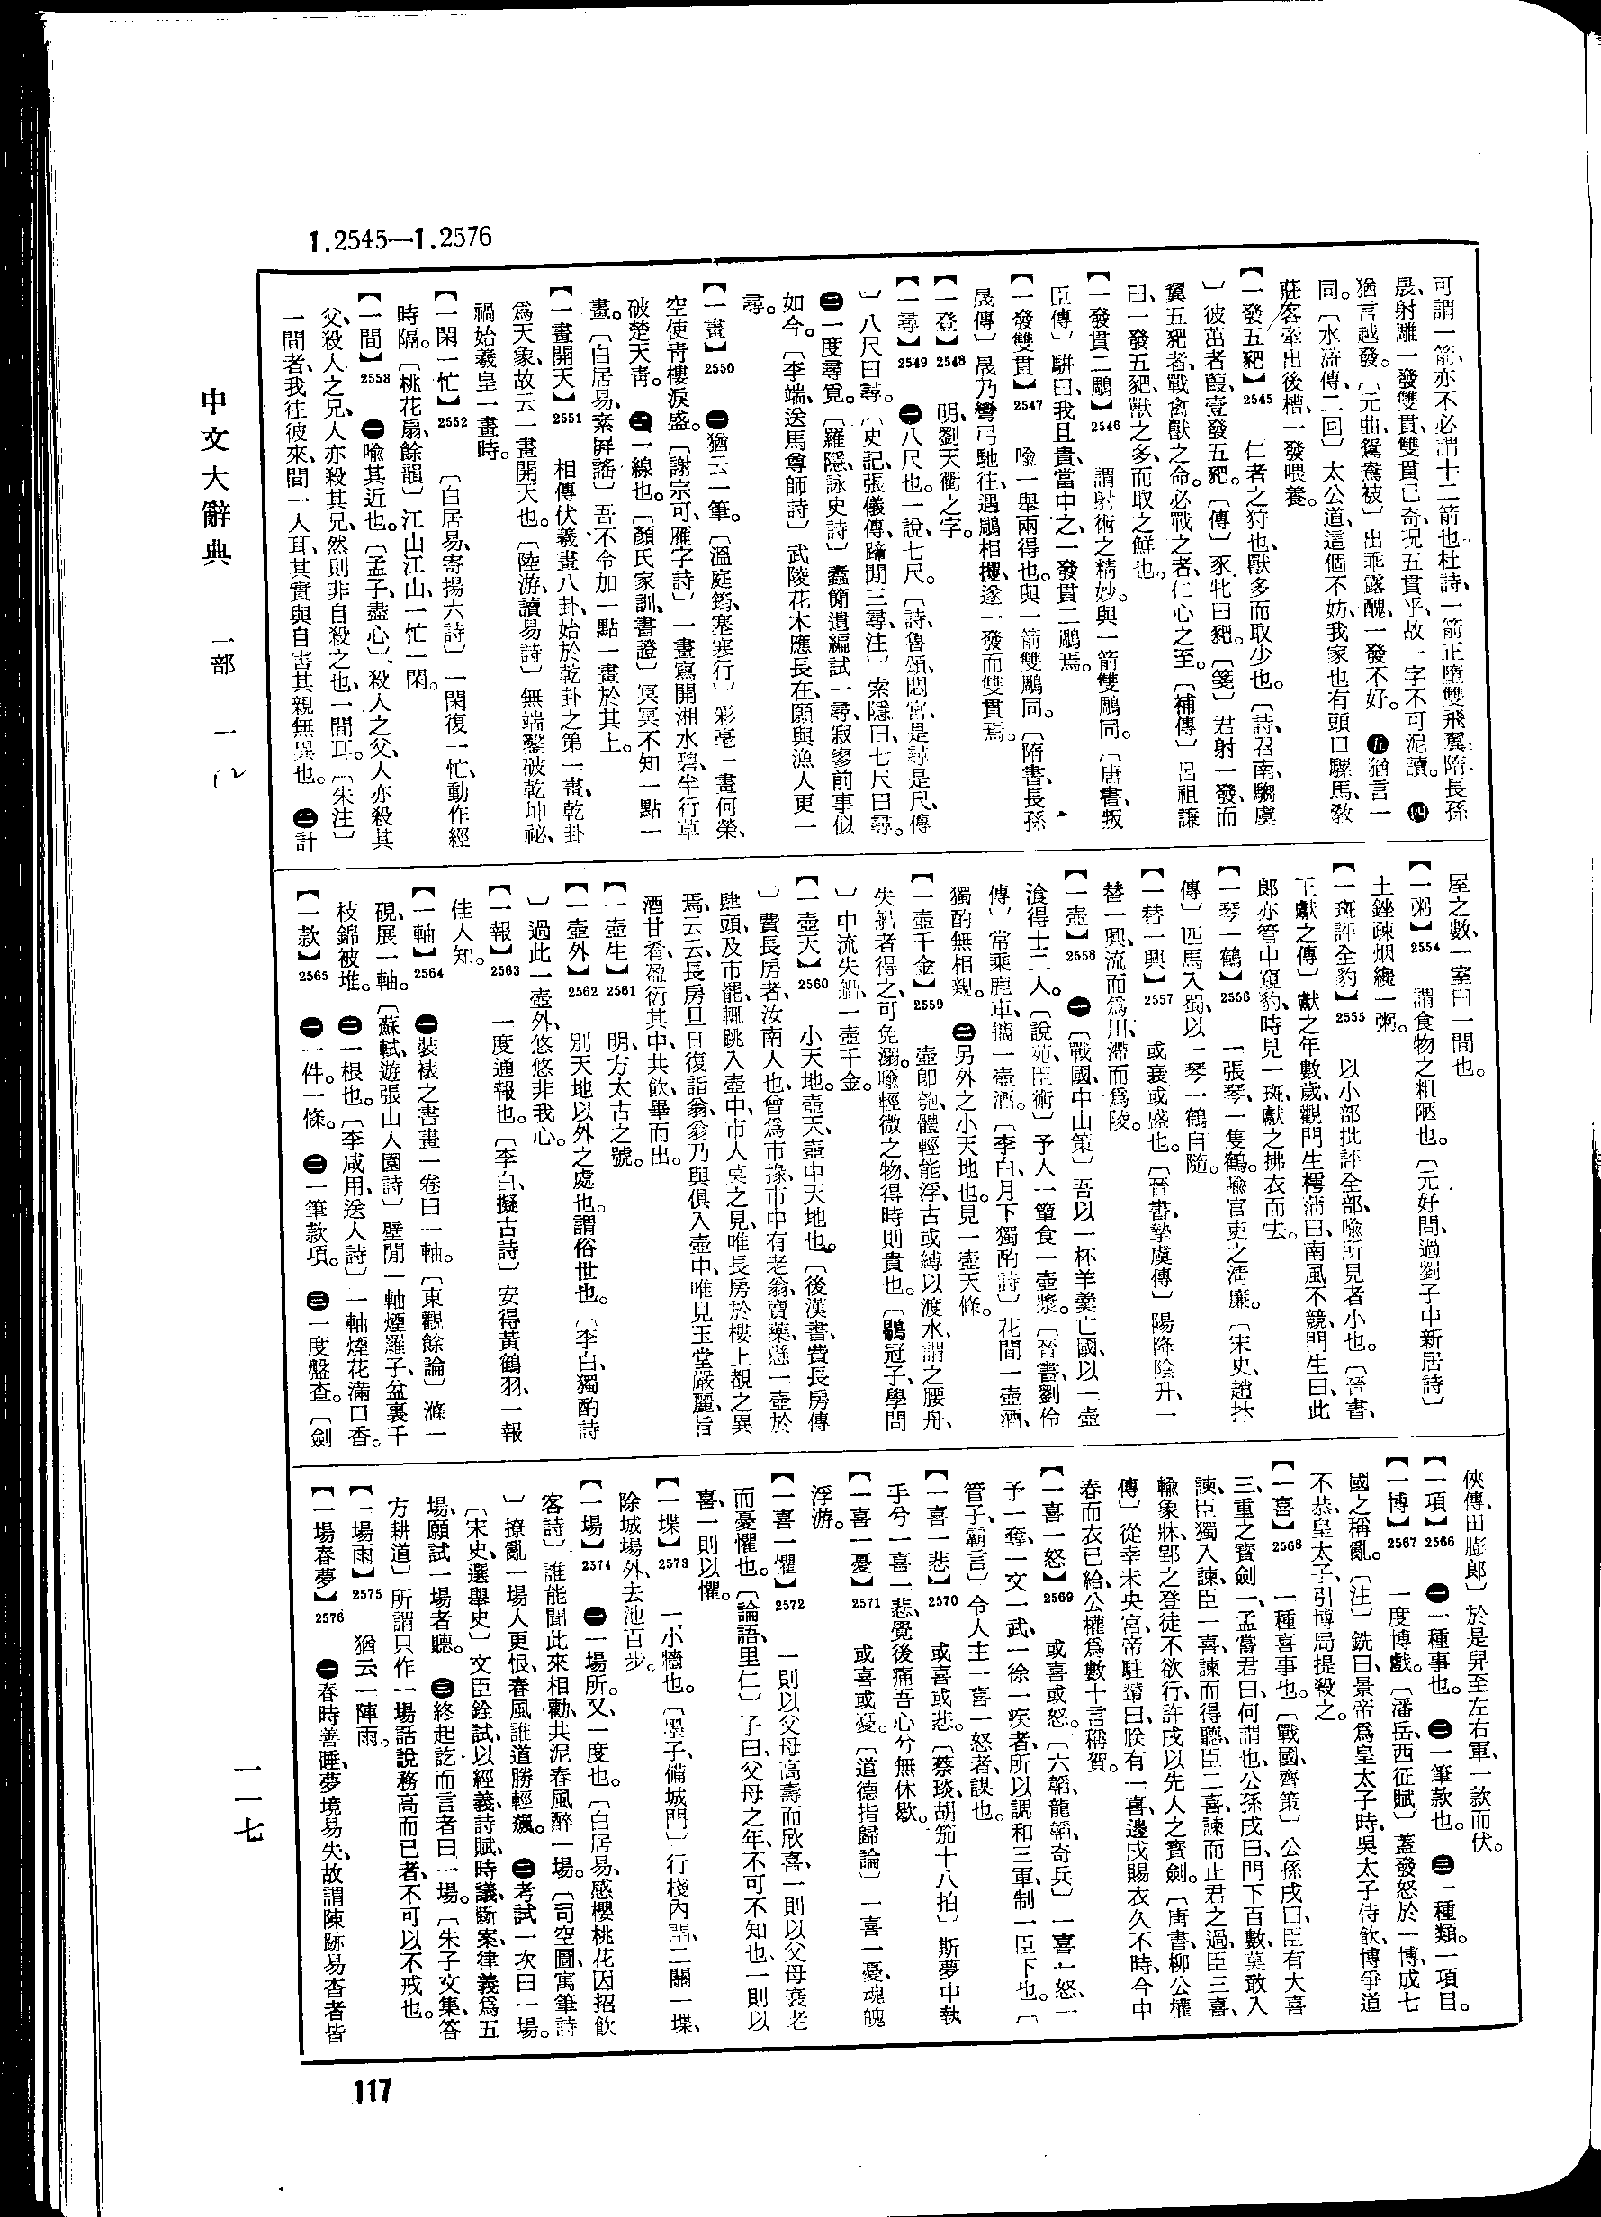 1.2545—1.2576
可謂一箭、亦不必謂十二箭也、杜詩、一箭正墮雙飛翼、隋長孫
晟、射雕一發雙貫、雙貫已奇、況五貫乎、故一字不可泥讀。四
猶言越發。〔元曲鴛鴦被〕出乖露醜、一發不好。五猶言一
同。〔水滸傳、二回〕太公道、這個不妨、我家也有頭口騾馬、敎
莊客牽出後槽、一發喂養。
【一發五豝】2545 仁者之狩也、獸多而取少也。〔詩、召南、騶虞
〕彼茁者葭、壹發五豝。〔傳〕豕牝曰豝。〔箋〕君射一發、而
翼五豝者、戰禽獸之命。必戰之者、仁心之至。〔補傳〕呂祖謙
曰、一發五豝、獸之多、而取之鮮也。
【一發貫二鵰】2546 謂射術之精妙、與一箭雙鵰同。〔唐書、叛
臣傳〕騈曰、我且貴、當中之、一發貫二鵰焉。
【一發雙貫】2547 喩一舉兩得也、與一箭雙鵰同。〔隋書、長孫
晟傳〕晟乃彎弓馳往、遇鵰相攫、遂一發而雙貫焉。
【一登】2548 明、劉天衢之字。
【一尋】2549 一八尺也。一說、七尺。〔詩、魯頌、閟宮、是尋是尺、傳
〕八尺曰尋。〔史記、張儀傳、蹄閒三尋、注〕索隱曰、七尺曰尋。
二一度尋覓。〔羅隱、詠史詩〕蠹簡遺編試一尋、寂寥前事似
如今。〔李端、送馬尊師詩〕武陵花木應長在、願與漁人更一
尋。
【一畫】2550 一猶云一筆。〔溫庭筠、塞寒行〕彩毫一畫何榮、
空使靑樓淚盛。〔謝宗可、雁字詩〕一畫寫開湘水碧、半行草
破楚天靑。二一線也。〔顏氏家訓、書證〕冥冥不知一點一
畫。〔白居易、素屛謠〕吾不令加一點一畫於其上。
【一畫開天】2551 相傳伏羲畫八卦、始於乾卦之第一畫、乾卦
爲天象、故云一畫開天也。〔陸游、讀易詩〕無端鑿破乾坤祕、
禍始羲皇一畫時。
【一閑一忙】2552 〔白居易、寄揚六詩〕一閑復一忙、動作經
時隔。〔桃花扇、餘韻〕江山江山、一忙一閑。
【一間】2553 一喩其近也。〔孟子、盡心〕殺人之父、人亦殺其
父、殺人之兄、人亦殺其兄、然則非自殺之也、一間耳。〔朱注〕
一間者、我往彼來、間一人耳、其實與自害其親無異也。二計
屋之數、一室曰一間也。
【一粥】2554 謂食物之粗陋也。〔元好問、過劉子中新居詩〕
土銼疎烟纔一粥。
【一斑評全豹】2555 以小部批評全部、喩所見者小也。〔晉書、
王獻之傳〕獻之年數歲、觀門生樗蒱曰、南風不競、門生曰、此
郞亦管中窺豹、時見一斑、獻之拂衣而去。
【一琴一鶴】2556 一張琴、一隻鶴。喩官吏之淸廉。〔宋史、趙抃
傳〕匹馬入蜀、以一琴一鶴自隨。
【一替一興】2557 或衰或盛也。〔晉書、摯虞傳〕陽降陰升、一
替一興、流而爲川、滯而爲陵。
【一壺】2558 一〔戰國、中山策〕吾以一杯羊羹亡國、以一壺
飡得士二人。〔說苑、臣術〕予人一簞食一壺漿。〔晉書、劉伶
傳〕常乘鹿車、攜一壺酒。〔李白、月下獨酌詩〕花間一壺酒、
獨酌無相親。二另外之小天地也。見一壺天條。
【一壺千金】2559 壺卽匏、體輕能浮、古或縛以渡水、謂之腰舟、
失船者得之、可免溺。喩輕微之物、得時則貴也。〔鶡冠子、學問
〕中流失船、一壺千金。
【一壺天】2560 小天地。壺天、壺中天地也。〔後漢書、費長房傳
〕費長房者、汝南人也、曾爲市掾、市中有老翁、賣藥、懸一壺於
肆頭、及市罷、輒跳入壺中、市人莫之見、唯長房於樓上覩之、異
焉、云云、長房旦日復詣翁、翁乃與俱入壺中、唯見玉堂嚴麗、旨
酒甘肴、盈衍其中、共飮畢而出。
【一壺生】2561 明、方太古之號。
【一壺外】2562 別天地以外之處也。謂俗世也。〔李白、獨酌詩
〕過此一壺外、悠悠非我心。
【一報】2563 一度通報也。〔李白、擬古詩〕安得黃鶴羽、一報
佳人知。
【一軸】2564 一裝裱之書畫一卷曰一軸。〔東觀餘論〕滌一
硯、展一軸。〔蘇軾、遊張山人園詩〕壁閒一軸煙蘿子、盆裏千
枝錦被堆。二一根也。〔李咸用、送人詩〕一軸煙花滿口香。
【一款】2565 一一件。一條。二一筆款項。三一度盤查。〔劍
俠傳、田膨郎〕於是舁至左右軍、一款而伏。
【一項】2566 一一種事也。二一筆款也。三一種類。一項目。
【一博】2567 一度博戲。〔潘岳、西征賦〕蓋發怒於一博、成七
國之稱亂。〔注〕銑曰、景帝爲皇太子時、吳太子侍飮、博爭道
不恭、皇太子引博局提殺之。
【一喜】2568 一種喜事也。〔戰國、齊策〕公孫戌曰、臣有大喜
三、重之寶劍一、孟嘗君曰、何謂也、公孫戌曰、門下百數、莫敢入
諫、臣獨入諫、臣一喜、諫而得聽、臣二喜、諫而止君之過、臣三喜、
輸象牀、郢之登徒不欲行、許戌以先人之寶劍。〔唐書、柳公權
傳〕從幸未央宮、帝駐輦曰、朕有一喜、邊戍賜衣久不時、今中
春而衣已給、公權爲數十言稱賀。
【一喜一怒】2569 或喜或怒。〔六韜、龍韜、奇兵〕一喜一怒、一
予一奪、一文一武、一徐一疾者、所以調和三軍、制一臣下也。〔
管子、霸言〕令人主一喜一怒者、謀也。
【一喜一悲】2570 或喜或悲。〔蔡琰、胡笳十八拍〕斯夢中執
手兮一喜一悲、覺後痛吾心兮無休歇。
【一喜一憂】2571 或喜或憂。〔道德指歸論〕一喜一憂、魂魄
浮游。
【一喜一懼】2572 一則以父母高壽而欣喜、一則以父母衰老
而憂懼也。〔論語、里仁〕子曰、父母之年、不可不知也、一則以
喜、一則以懼。
【一堞】2573 一小牆也。〔墨子、備城門〕行棧內閈、二關一堞、
除城場外、去池百步。
【一場】2574 一一場所。又、一度也。〔白居易、感櫻桃花因招飮
客詩〕誰能聞此來相勸、共泥春風醉一場。〔司空圖、寓筆詩
〕撩亂一場人更恨、春風誰道勝輕颸。二考試一次曰一場。
〔宋史、選舉史〕文臣銓試、以經義、詩賦、時議、斷案、律義爲五
場、願試一場者聽。三終起訖而言者曰一場。〔朱子文集、答
方耕道〕所謂只作一場話說務高而已者、不可以不戒也。
【一場雨】2575 猶云一陣雨。
【一場春夢】2576 一春時善睡、夢境易失、故謂陳跡易杳者皆
中文大辭典 一部 一
一一七
117